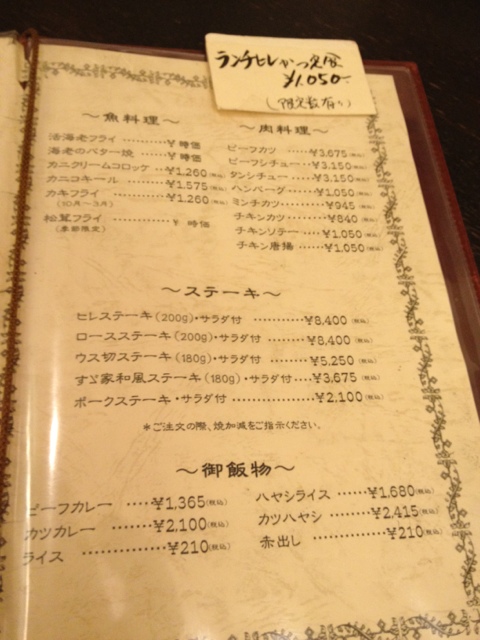 ランチヒレかつ定食
¥1,050-
(限定数有り)
～魚料理～
活海老フライ ………¥ 時価
海老のバター焼 ……¥ 時価
カニクリームコロッケ …¥1,260(税込)
カニコキール ………¥1,575(税込)
カキフライ …………¥1,260(税込)
(10月～3月)
松茸フライ …………¥ 時価
(季節限定)
～肉料理～
ビーフカツ ……¥3,675(税込)
ビーフシチュー …¥3,150(税込)
タンシチュー ……¥3,150(税込)
ハンバーグ ………¥1,050(税込)
ミンチカツ ………¥945(税込)
チキンカツ ………¥840(税込)
チキンソテー ……¥1,050(税込)
チキン唐揚 ………¥1,050(税込)
～ステーキ～
ヒレステーキ(200g)・サラダ付 …………¥8,400(税込)
ロースステーキ(200g)・サラダ付 ………¥8,400(税込)
ウス切ステーキ(180g)・サラダ付 ………¥5,250(税込)
すゞ家和風ステーキ(180g)・サラダ付 ……¥3,675(税込)
ポークステーキ・サラダ付 …………………¥2,100(税込)
＊ご注文の際、焼加減をご指示ください。
～御飯物～
ビーフカレー ………¥1,365(税込)
カツカレー …………¥2,100(税込)
ライス ………………¥210(税込)
ハヤシライス ……¥1,680(税込)
カツハヤシ ………¥2,415(税込)
赤出し ……………¥210(税込)